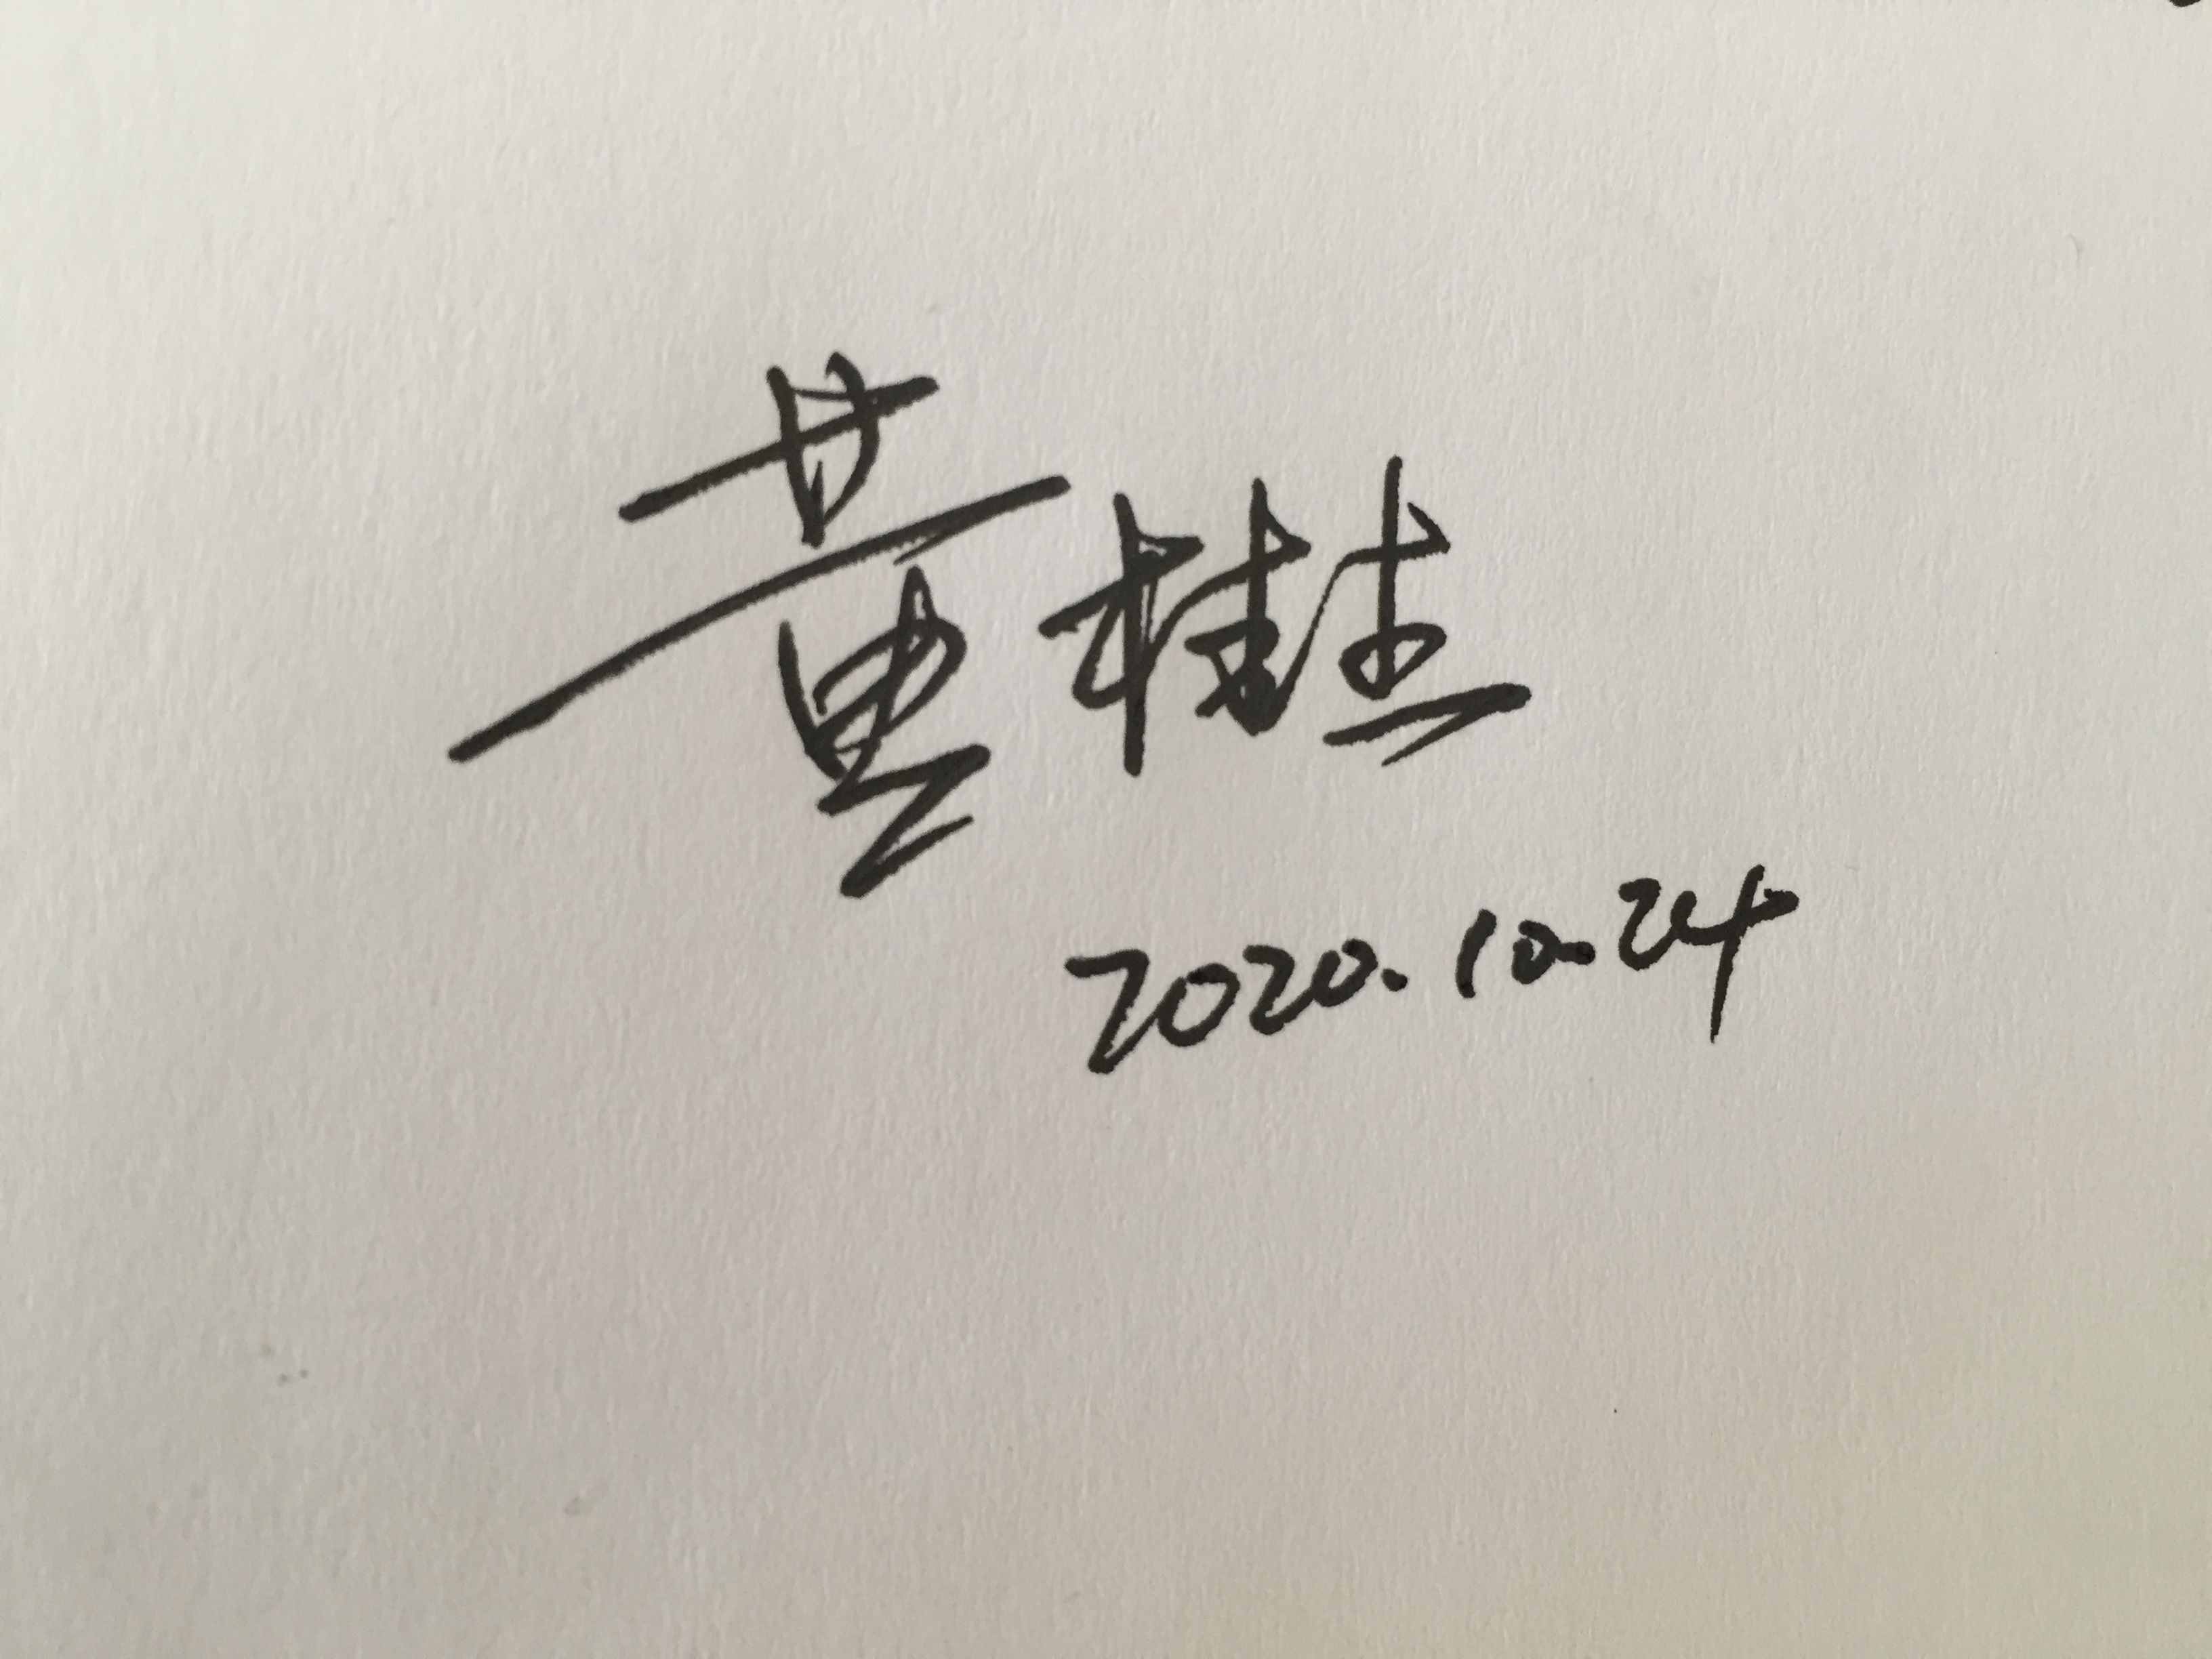 黄桂生
2020.10.24